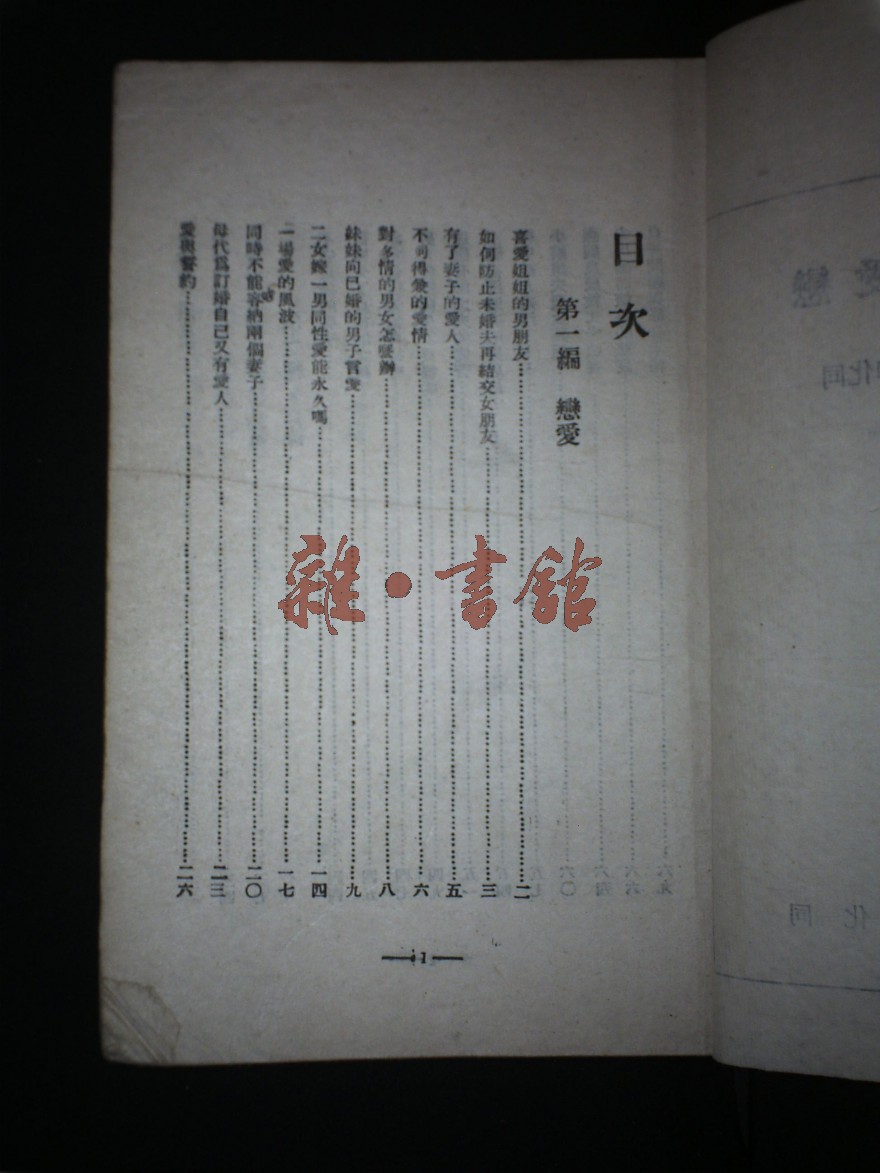 目次
第一編　戀愛
喜愛姐姐的男朋友……二
如何防止未婚夫再結交女朋友……三
有了妻子的愛人……五
不同得愛的愛情……六
對多情的男女怎麼辦……八
妹妹向已婚的男子言愛……九
二女嫁一男同性愛能永久嗎……一四
一場愛的風波……一七
同時不能容納兩個妻子……二〇
母代為訂婚自己又有愛人……二三
愛與誓約……二六
1
雜·書館